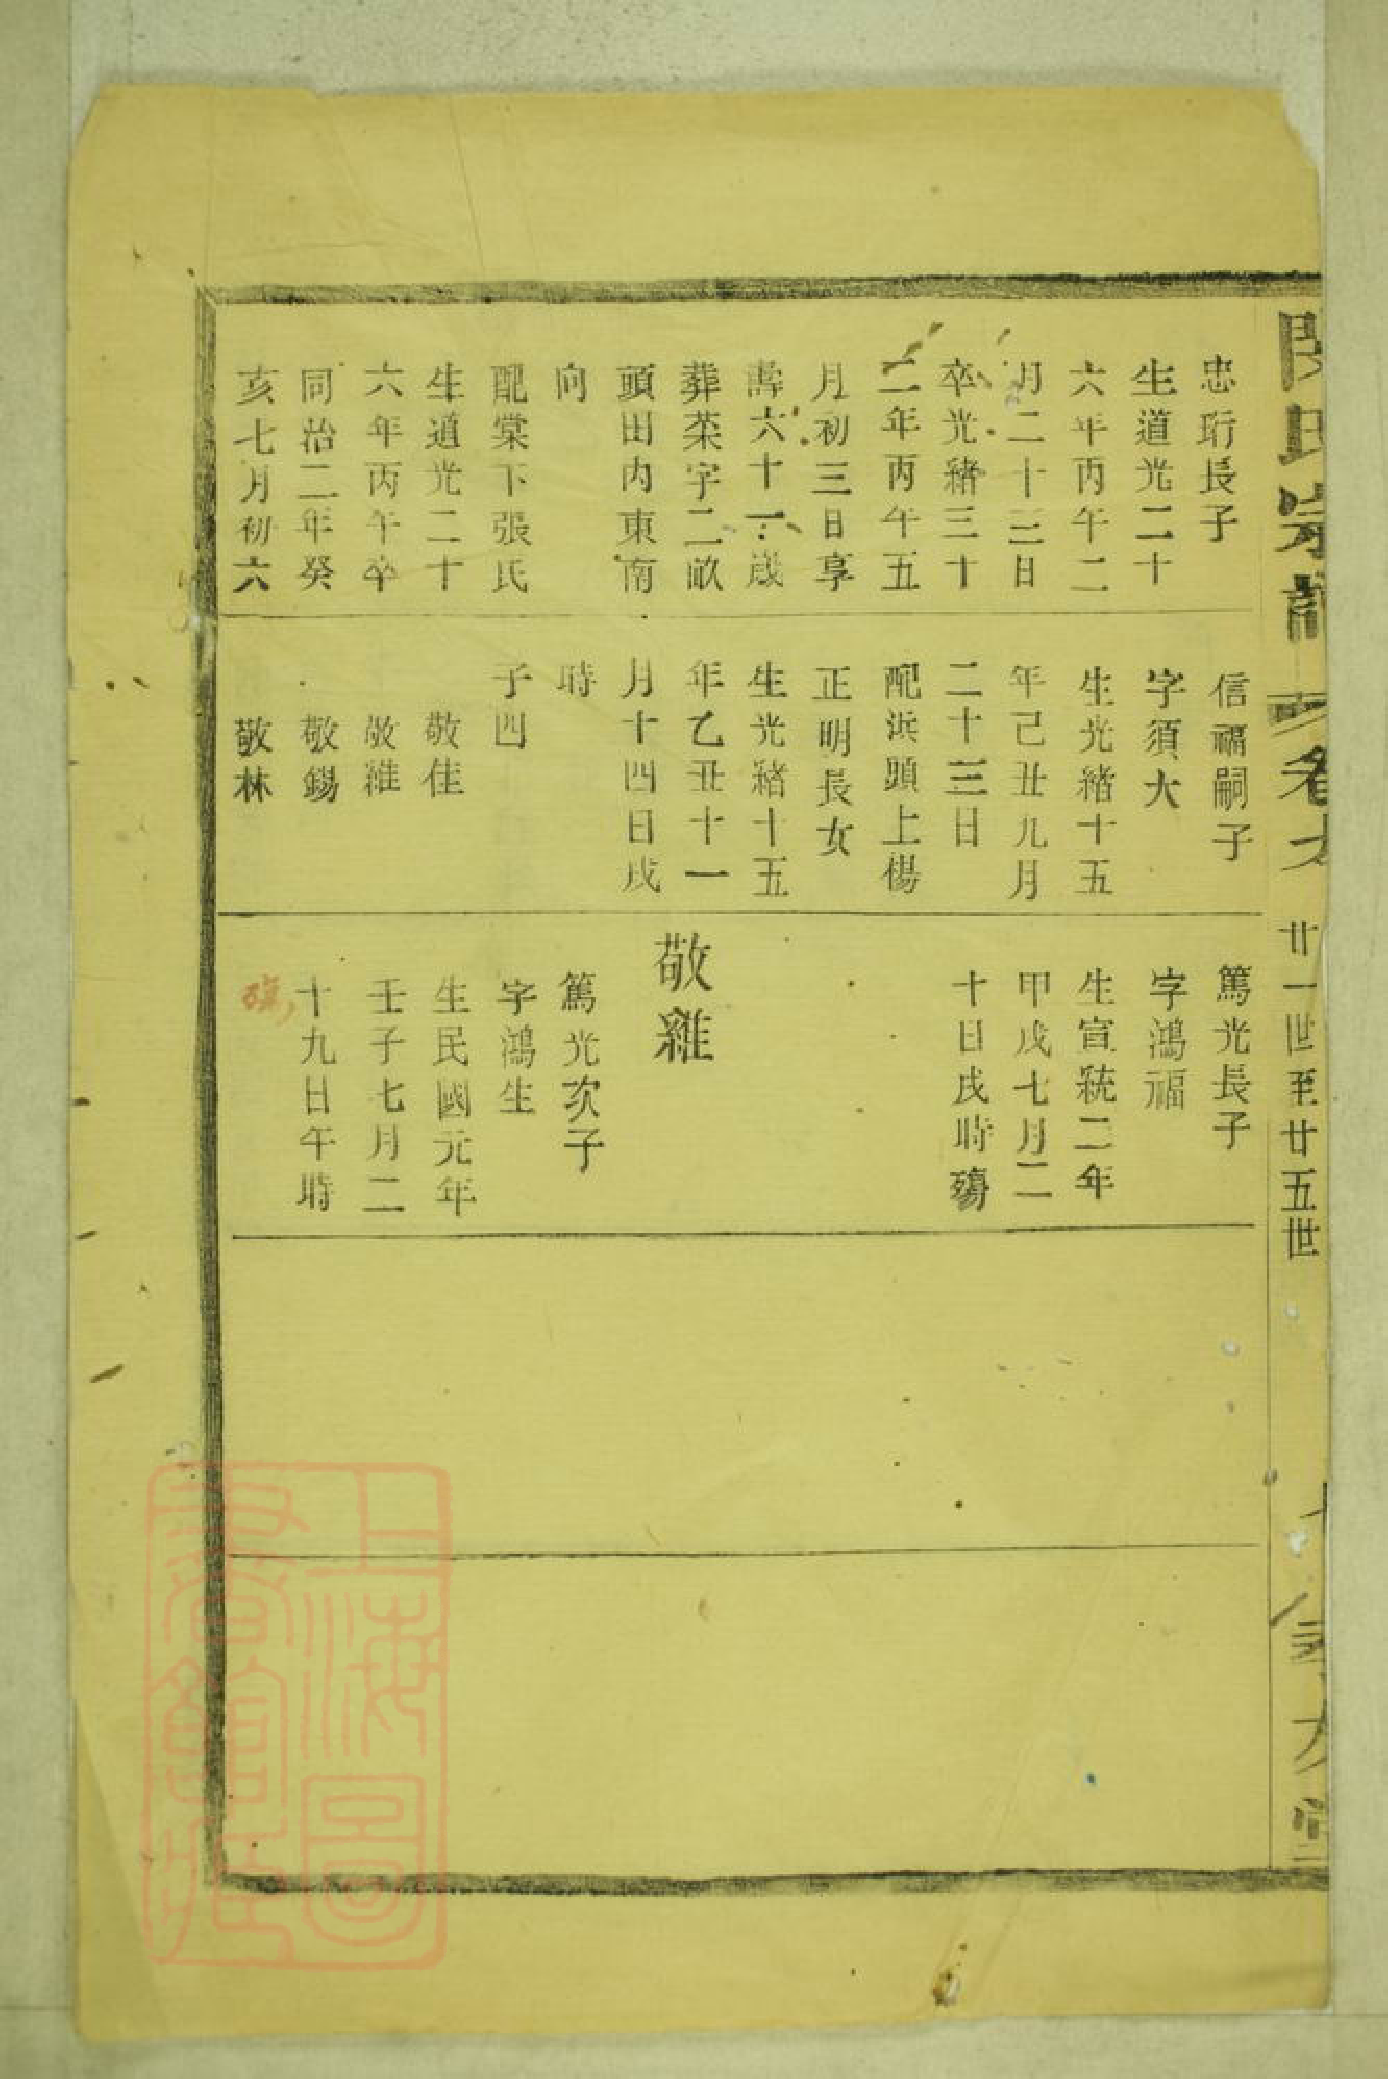 氏宗譜
卷
廿一世至廿五世
堂
忠珩長子
生道光二十
六年丙午二
月二十三日
卒光緒三十
二年丙午五
月初三日享
壽六十一歲
葬菜字二畝
頭田內東南
向
配棠下張氏
生道光二十
六年丙午卒
同治二年癸
亥七月初六
信福嗣子
字須大
生光緒十五
年己丑九月
二十三日
配浜頭上楊
正明長女
生光緒十五
年乙丑十一
月十四日戌
時
子四
敬佳
敬雒
敬錫
敬林
篤光長子
字鴻福
生宣統二年
甲戌七月二
十日戌時殤
敬雒
篤光次子
字鴻生
生民國元年
壬子七月二
十九日午時
上海圖
書館藏